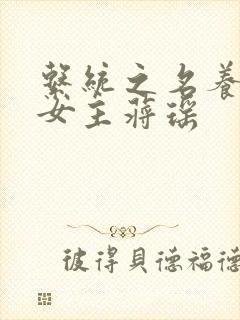 繫統之名養
女主蔣瑶
彼得貝德福德